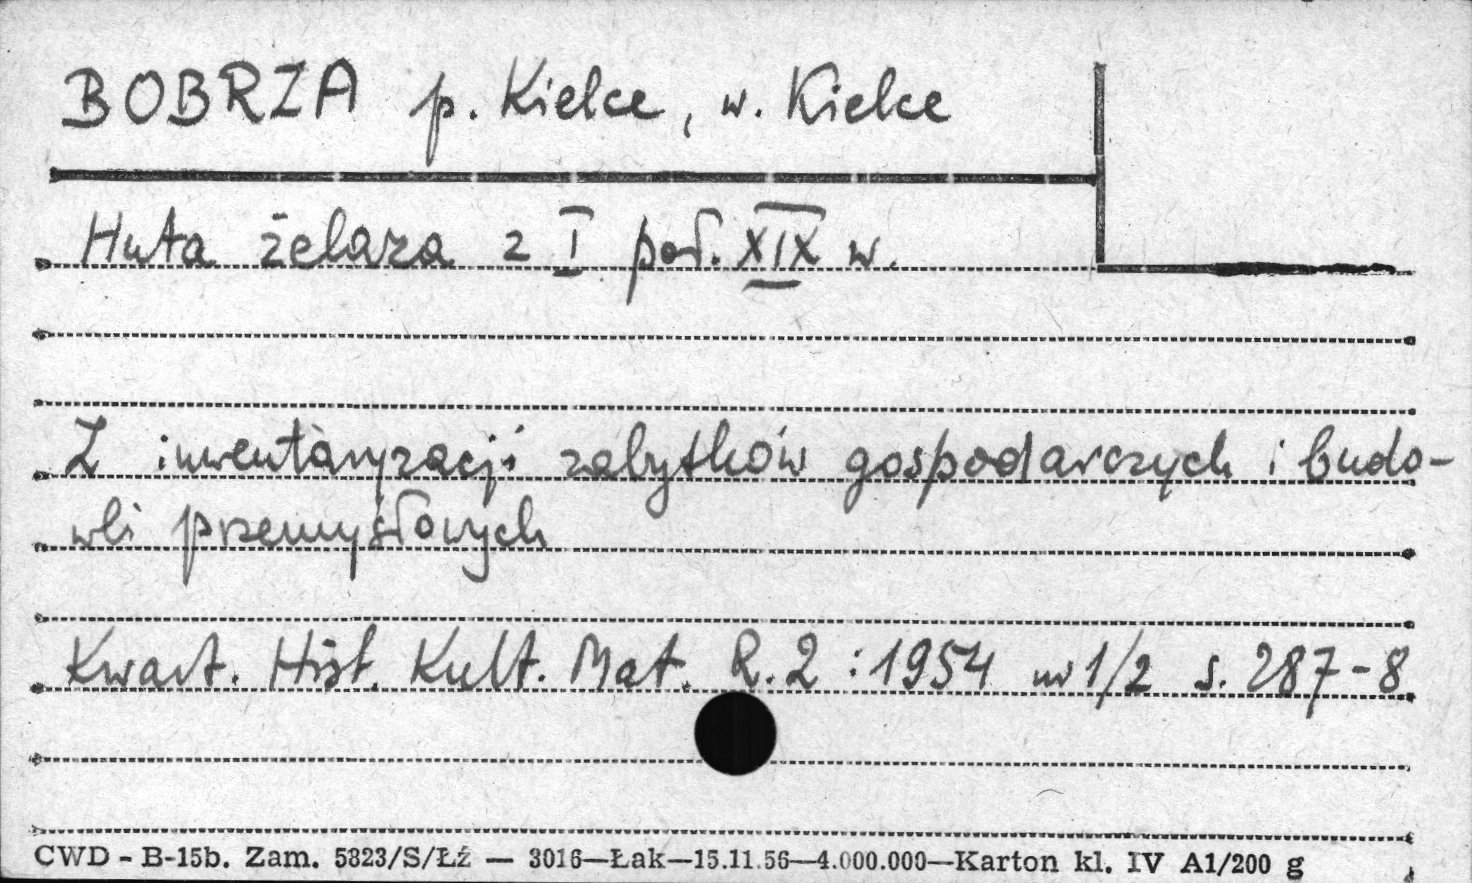 BOBRZA p. Kielce, w. Kielce
Huta żelaza z I poł. XIX w.
Z inwentaryzacji zabytków gospodarczych i budo-
wli przemysłowych
Kwart. Hist. Kult. Mat. R. 2 : 1954 nr 1/2 s. 287-8
CWD - B-15b. Zam. 5823/S/Łź — 3016—Łak—15.11.56—4.000.000—Karton kl. IV A1/200 g